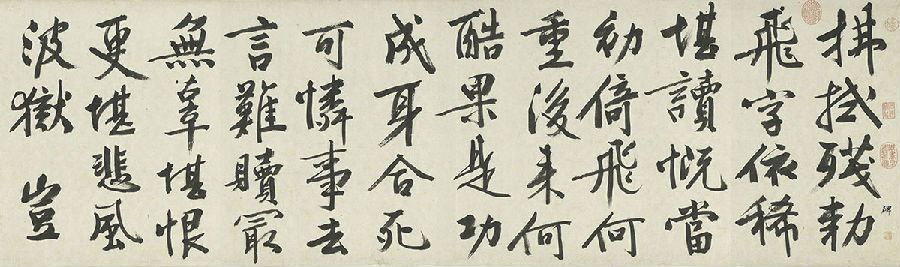 拂拭殘勑
碑
飛字依稀
堪讀慨當
初倚飛何
重後來何
酷果是功
成身合死
可憐事去
言難贖冣
無辜堪恨
更堪悲風
波獄豈